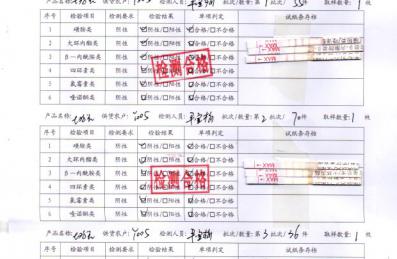 产品名称: 供货农户: Y005 检测人员: 批次/数量: 第1批次/ 取样数量: 1 枚
序号 检验项目 检测要求 检验结果 单项判定 试纸条存档
1 磺胺类 阴性 ☑阴性/□阳性 ☑合格/□不合格
2 大环内酯类 阴性 ☑阴性/□阳性 ☑合格/□不合格
3 β-内酰胺类 阴性 ☑阴性/□阳性 ☑合格/□不合格
4 四环素类 阴性 ☑阴性/□阳性 ☑合格/□不合格
5 氟霉素类 阴性 ☑阴性/□阳性 ☑合格/□不合格
6 喹诺酮类 阴性 ☑阴性/□阳性 ☑合格/□不合格
检测合格
MAX
产品名称: 供货农户: Y005 检测人员: 批次/数量: 第2批次/70件 取样数量: 1 枚
序号 检验项目 检测要求 检验结果 单项判定 试纸条存档
1 磺胺类 阴性 ☑阴性/□阳性 ☑合格/□不合格
2 大环内酯类 阴性 ☑阴性/□阳性 ☑合格/□不合格
3 β-内酰胺类 阴性 ☑阴性/□阳性 ☑合格/□不合格
4 四环素类 阴性 ☑阴性/□阳性 ☑合格/□不合格
5 氟霉素类 阴性 ☑阴性/□阳性 ☑合格/□不合格
6 喹诺酮类 阴性 ☑阴性/□阳性 ☑合格/□不合格
检测合格
MAX
产品名称: 供货农户: Y005 检测人员: 批次/数量: 第3批次/36件 取样数量: 1 枚
序号 检验项目 检测要求 检验结果 单项判定 试纸条存档